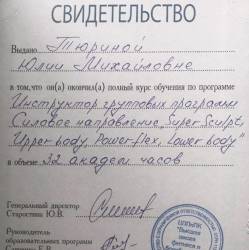 СВИДЕТЕЛЬСТВО
Выдано Тюриной
Юлии Михайловне
в том, что он(а) окончил(а) полный курс обучения по программе
Инструктор групповых программ
Силовое направление, Super Sculpt,
Upper body, Power flex, Lower body
в объеме 32 академ. часов
Генеральный директор
Старостина Ю.В.
Руководитель
образовательных программ